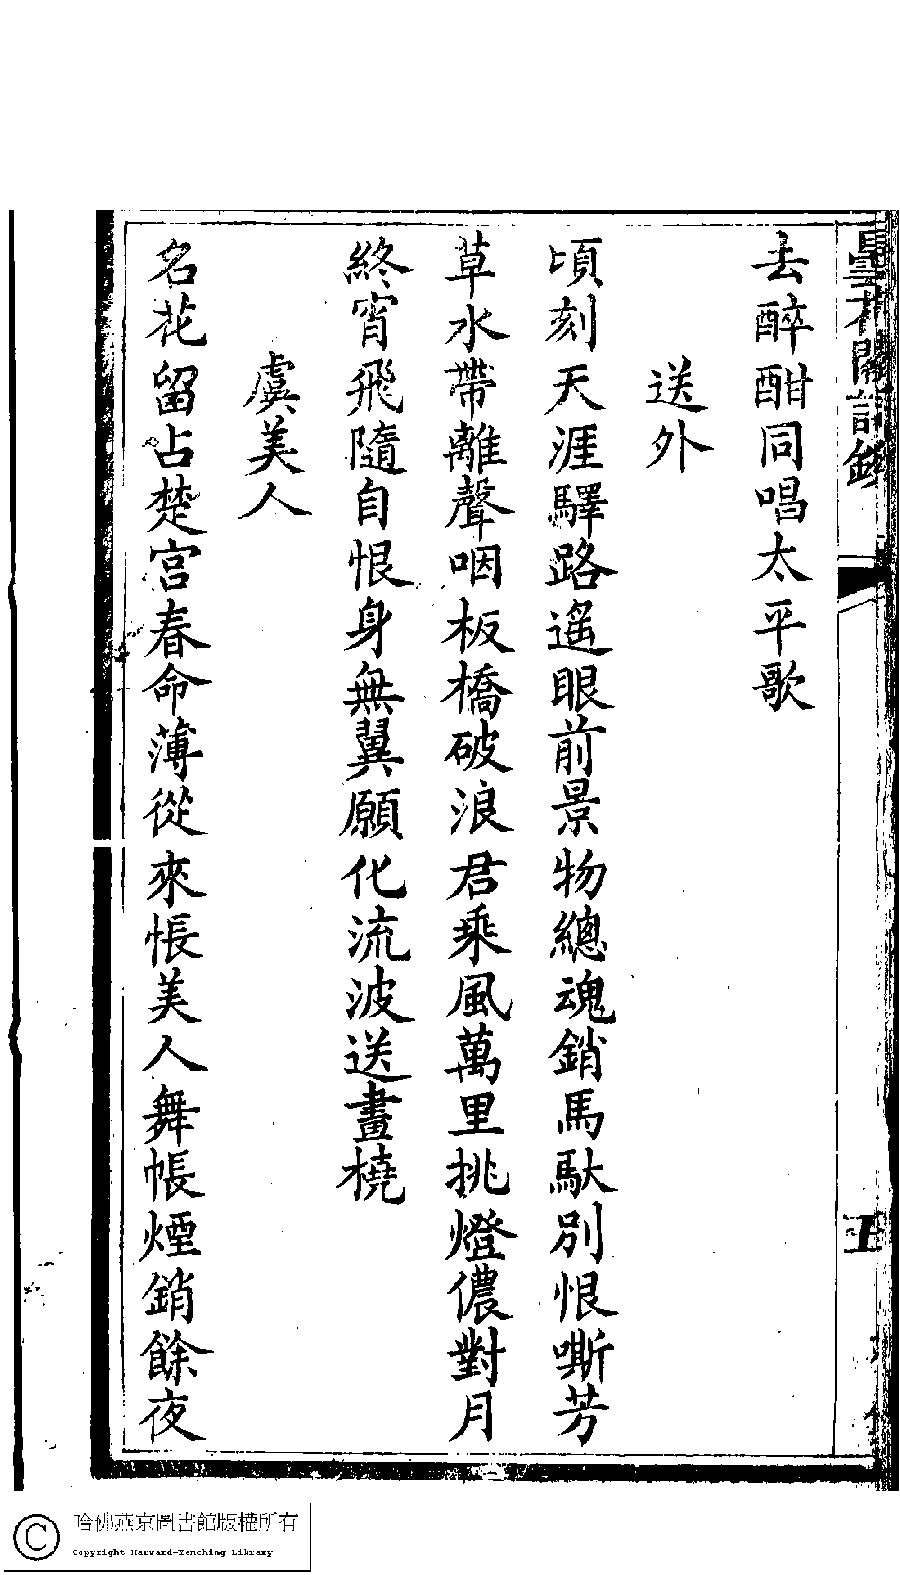 曇花閣詩鈔
去醉酣同唱太平歌
送外
頃刻天涯驛路遙眼前景物總魂銷馬馱別恨嘶芳
草水帶離聲咽板橋破浪君乘風萬里挑燈儂對月
終宵飛隨自恨身無翼願化流波送畫橈
虞美人
名花留占楚宮春命薄從來悵美人舞帳煙銷餘夜
哈佛燕京圖書館版權所有
Copyright Harvard-Yenching Library